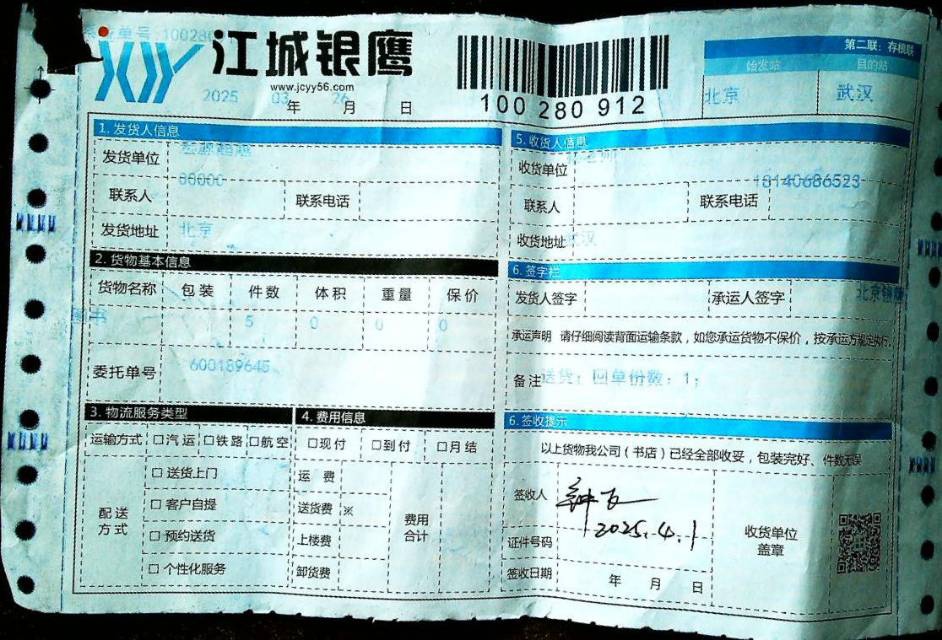 单号 100280
江城银鹰
www.jcyy56.com
2025 03 26
年 月 日
100 280 912
第二联：存根联
始发站 目的站
北京 武汉
1. 发货人信息
发货单位
00000
联系人 联系电话
发货地址 北京
2. 货物基本信息
货物名称 包装 件数 体积 重量 保价
图书 5 0 0 0
委托单号 600189645
3. 物流服务类型
运输方式 □汽运 □铁路 □航空
配送方式
□ 送货上门
□ 客户自提
□ 预约送货
□ 个性化服务
4. 费用信息
□现付 □到付 □月结
运费
送货费 ※
上楼费
卸货费
费用合计
5. 收货人信息
收货单位
18140686523
联系人 联系电话
收货地址 武汉
6. 签字栏
发货人签字 承运人签字 北京
承运声明 请仔细阅读背面运输条款，如您承运货物不保价，按承运方规定执行。
备注 送货；回单份数：1；
6. 签收提示
以上货物我公司（书店）已经全部收妥，包装完好、件数无误
签收人
2025.4.1
证件号码
签收日期 年 月 日
收货单位
盖章